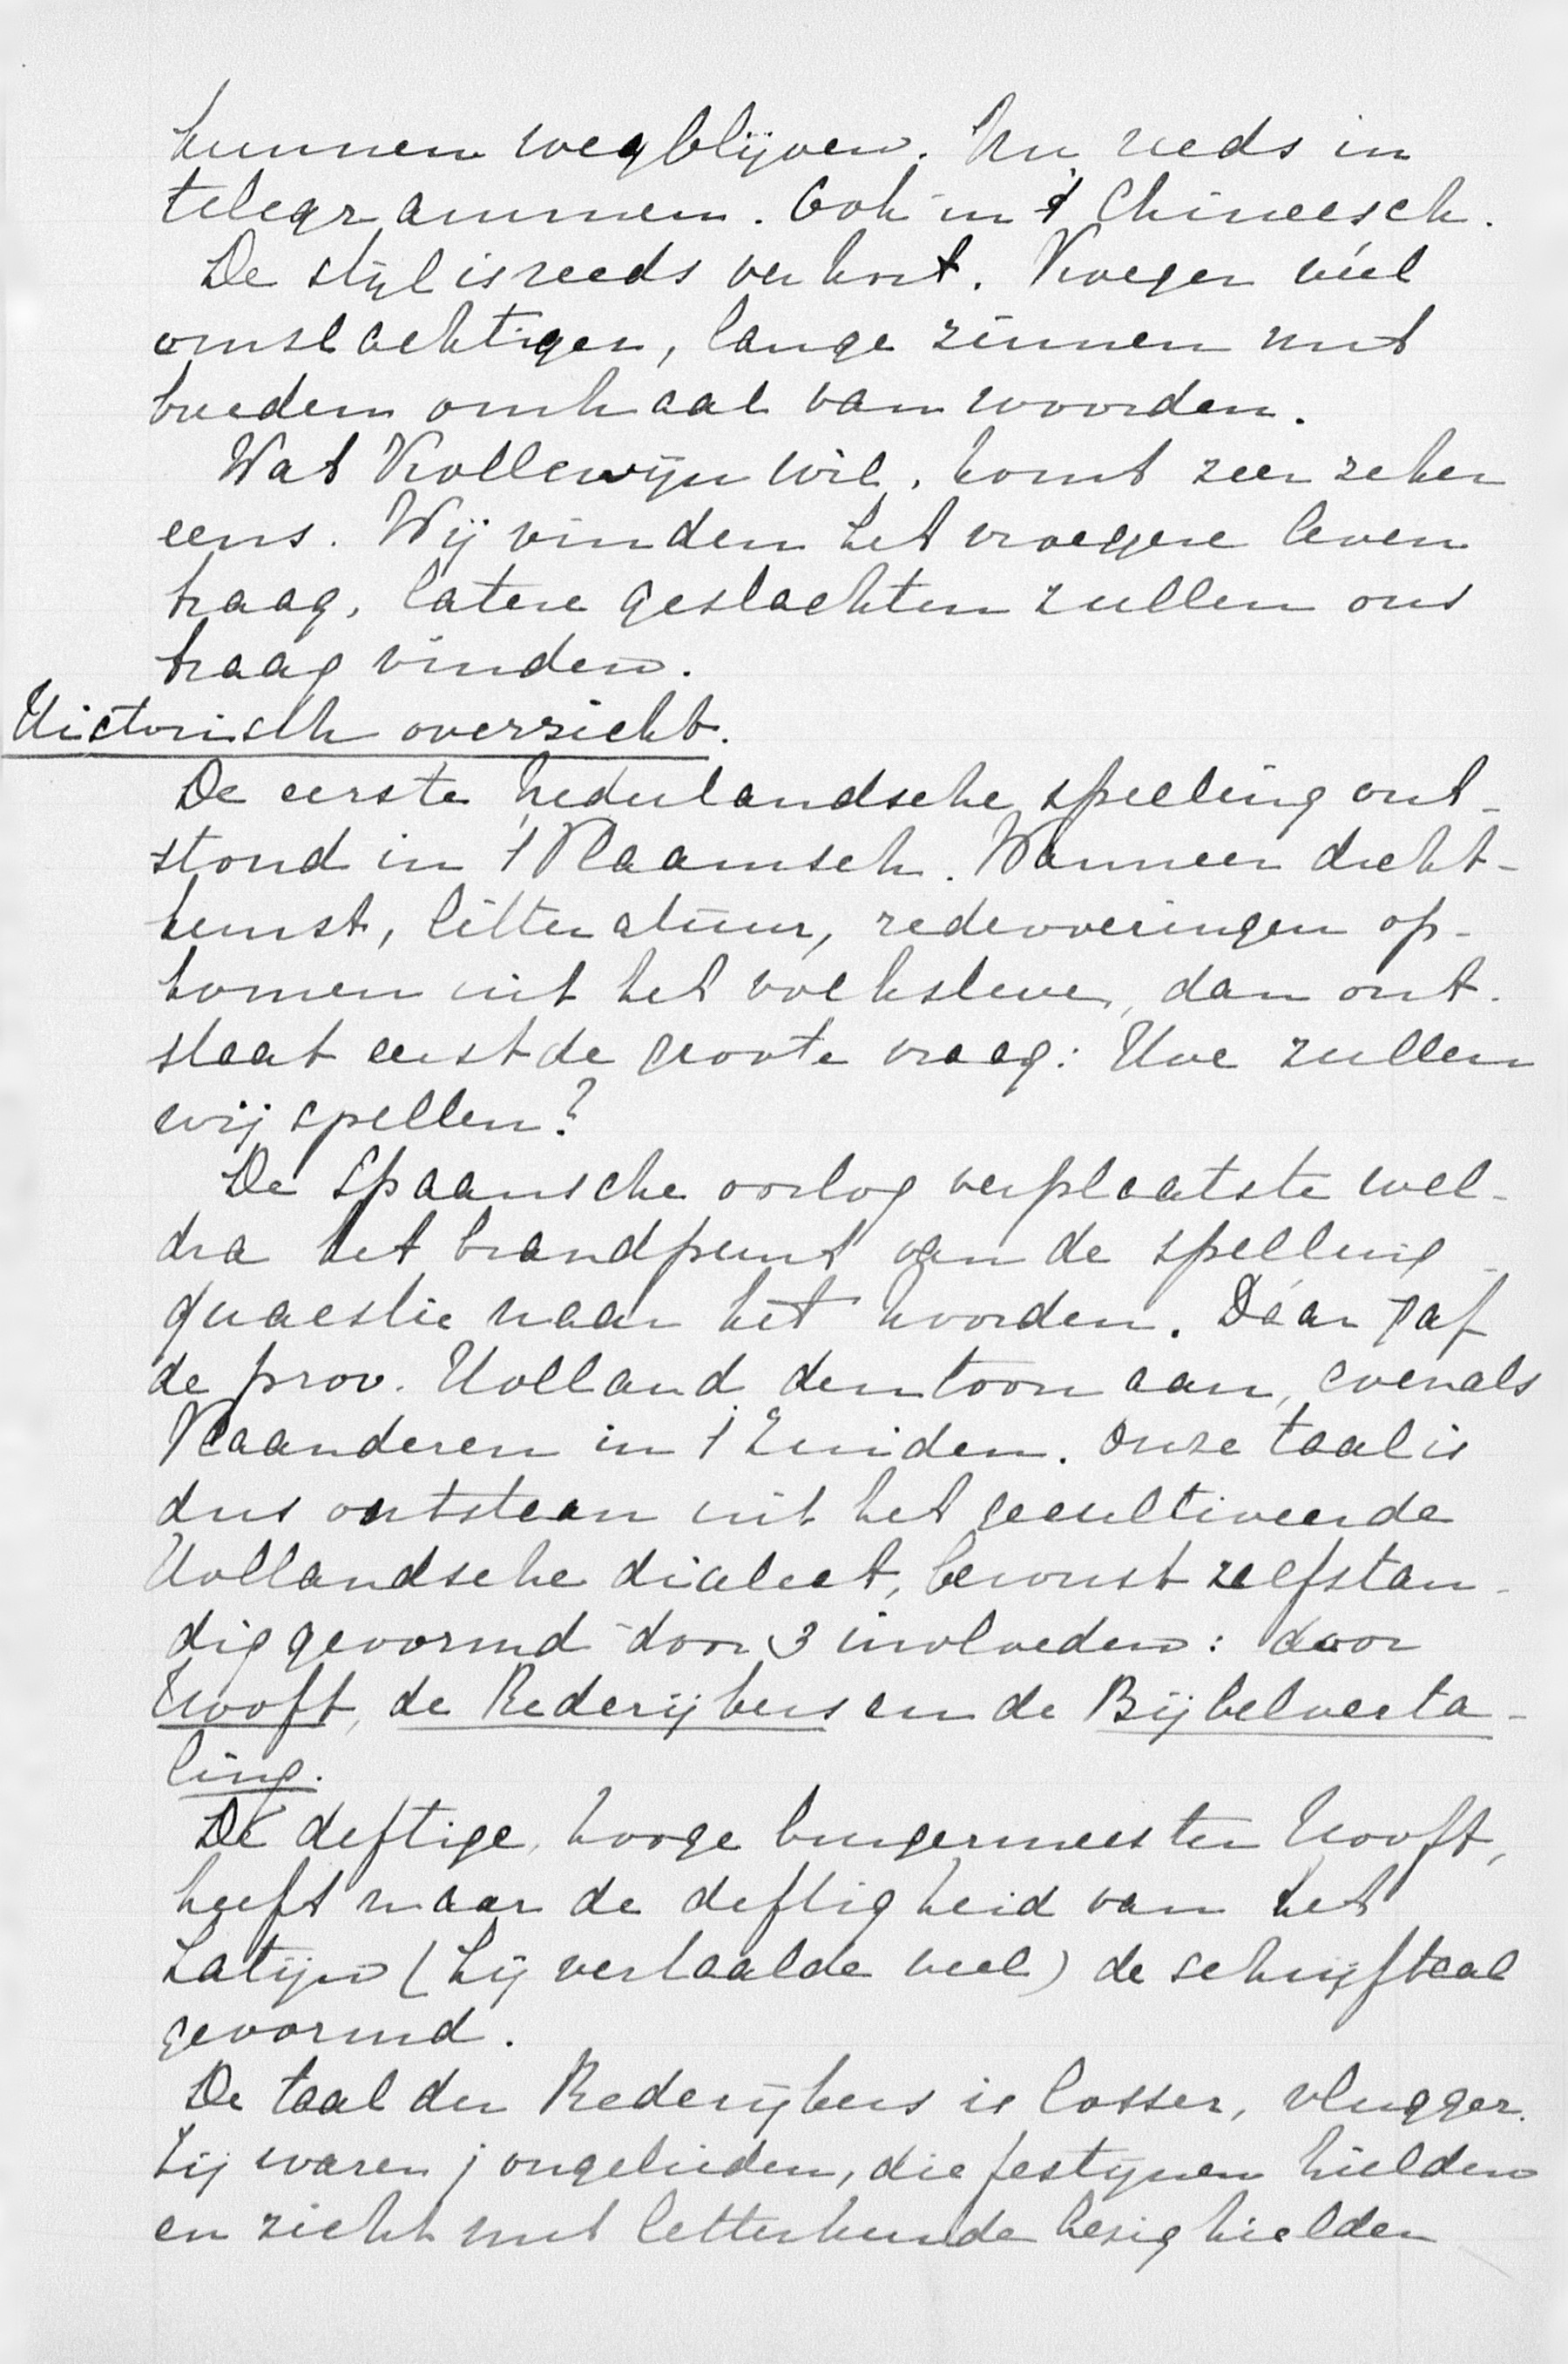 kunnen wegblijven. Nu reeds in
telegrammen. Ook in 't Chineesch.
De stijl is reeds verkort. Vroeger véél
omslachtiger, lange zinnen met
breeden omhaal van woorden.
Wat Kollewijn wil, komt zeer zeker
eens. Wij vinden het vroegere leven
traag, latere geslachten zullen ons
traag vinden.
Historisch overzicht.
De eerste Nederlandsche spelling ont-
stond in 't Vlaamsch. Wanneer dicht-
kunst, litteratuur, redevoeringen op-
komen uit het volksleven, dan ont-
staat eerst de groote vraag: Hoe zullen
wij spellen?
De Spaansche oorlog verplaatste wel-
dra het brandpunt van de spelling-
quaestie naar het Noorden. Dáár gaf
de prov. Holland den toon aan, evenals
Vlaanderen in 't Zuiden. Onze taal is
dus ontstaan uit het gecultiveerde
Hollandsche dialect, bewust zelfstan-
dig gevormd door 3 invloeden: door
Hooft, de Rederijkers en de Bijbelverta-
ling.
De deftige, hooge burgermeester Hooft,
heeft naar de deftigheid van het
Latijn (hij vertaalde veel) de schrijftaal
gevormd.
De taal der Rederijkers is losser, vlugger.
Zij waren jongelieden, die festijnen hielden
en zich met letterkunde bezig hielden